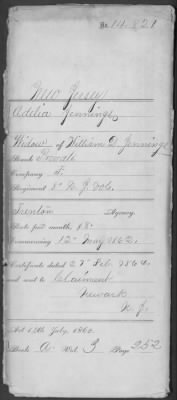 No. 14.821
New Jersey
Adelia Jennings
Widow of William D. Jennings
Rank Private
Company F.
Regiment 8" N. J. Vols.
Trenton Agency.
Rate per month, $8
Commencing 12" May 1862.
Certificate dated 2" Feb. 1864
and sent to Claimant
Newark
N. J.
Act 14th July, 1862.
Book A Vol. 3 Page 252